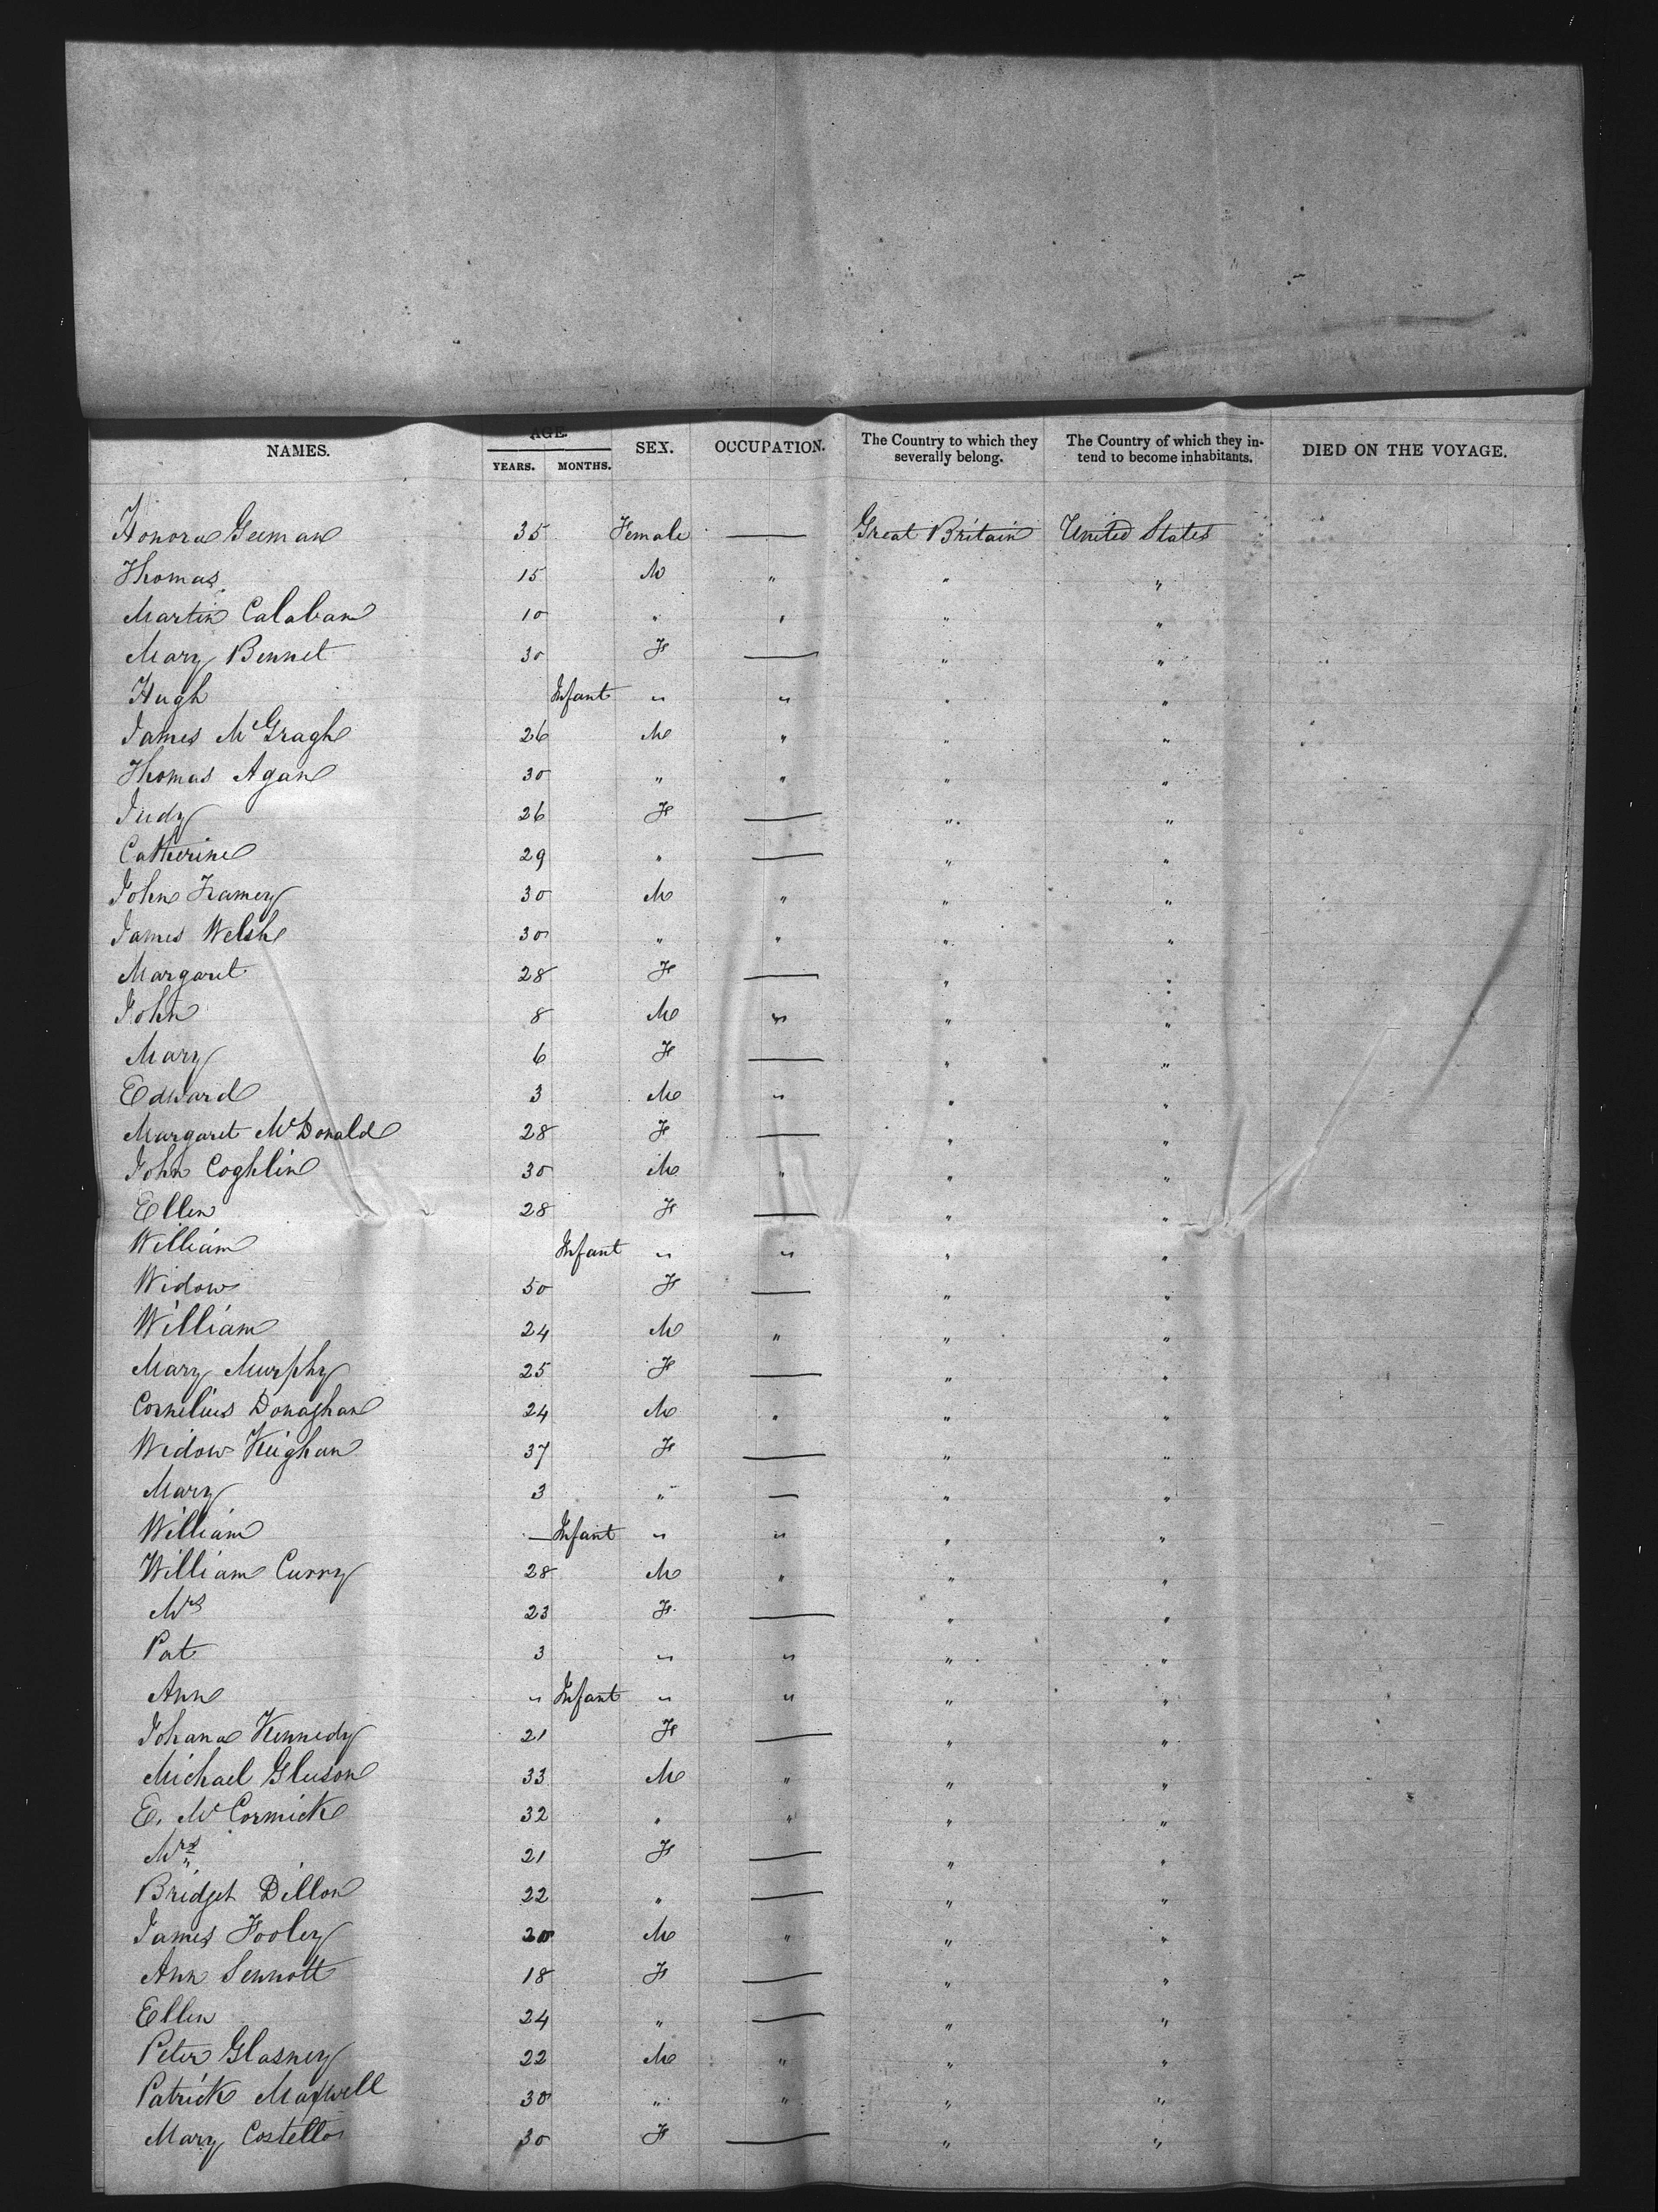 NAMES. AGE. YEARS. MONTHS. SEX. OCCUPATION. The Country to which they severally belong. The Country of which they intend to become inhabitants. DIED ON THE VOYAGE.
Honora Geeman 35 Female — Great Britain United States
Thomas 15 M " " "
Martin Calaban 10 " " " "
Mary Bennet 30 F — " "
Hugh Infant " " " "
James McGragh 26 M " " "
Thomas Agan 30 " " " "
Judy 26 F — " "
Catherine 29 " — " "
John Framey 30 M " " "
James Welsh 30 " " " "
Margaret 28 F — " "
John 8 M " " "
Mary 6 F — " "
Edward 3 M " " "
Margaret McDonald 28 F — " "
John Coghlin 30 M " " "
Ellen 28 F — " "
William Infant " " " "
Widow 50 F — " "
William 24 M " " "
Mary Murphy 25 F — " "
Cornelius Donaghan 24 M " " "
Widow Keighan 37 F — " "
Mary 3 " — " "
William — Infant " " " "
William Curry 28 M " " "
Mrs 23 F — " "
Pat 3 " " " "
Ann " Infant " " " "
Johana Kennedy 21 F — " "
Michael Gleeson 33 M " " "
E. McCormick 32 " " " "
Mrs " 21 F — " "
Bridget Dillon 22 " — " "
James Fooley 20 M " " "
Ann Sennott 18 F — " "
Ellen 24 " — " "
Peter Glasney 22 M " " "
Patrick Maxwell 30 " " " "
Mary Costello 30 F — " "